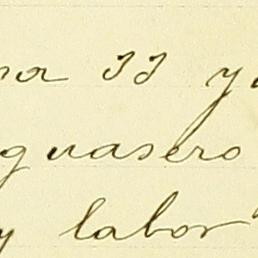 na 33 y
guasero
y labor